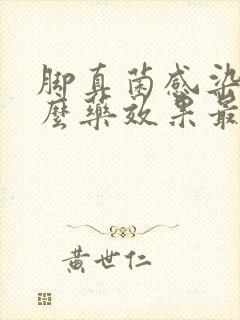 脚真菌感染
麼藥效果最
黃世仁